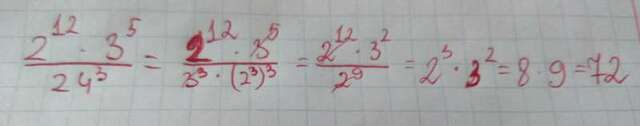 2¹² · 3⁵ / 24³ = 2¹² · 3⁵ / 3³ · (2³)³ = 2¹² · 3² / 2⁹ = 2³ · 3² = 8 · 9 = 72